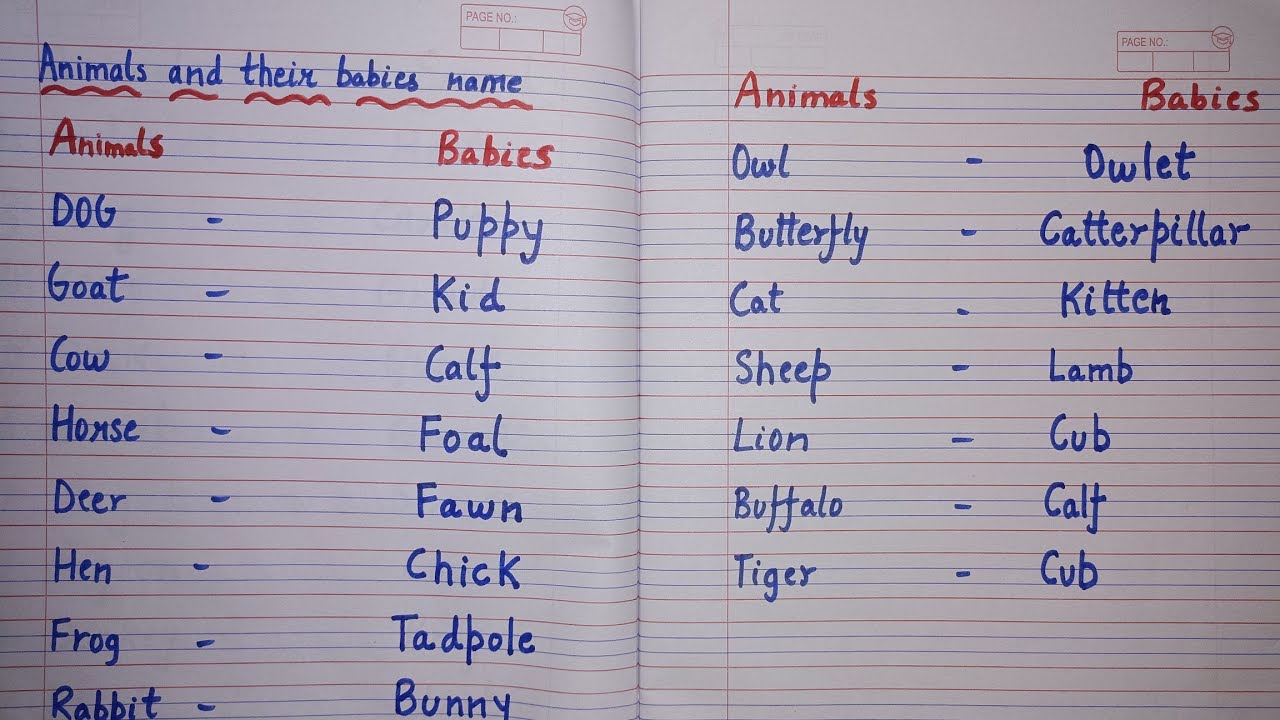 PAGE NO.:
Animals and their babies name
Animals Babies
DOG - Puppy
Goat - Kid
Cow - Calf
Horse - Foal
Deer - Fawn
Hen - Chick
Frog - Tadpole
Rabbit - Bunny
PAGE NO.:
Animals Babies
Owl - Owlet
Butterfly - Catterpillar
Cat - Kitten
Sheep - Lamb
Lion - Cub
Buffalo - Calf
Tiger - Cub